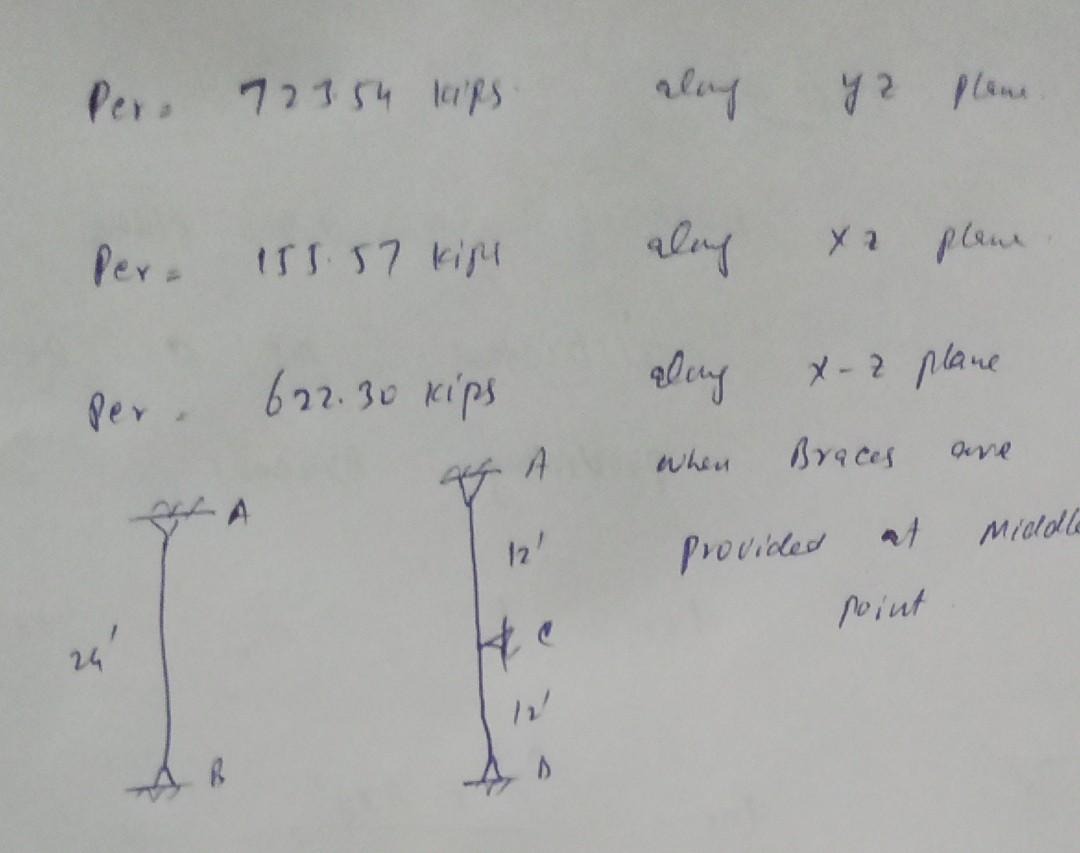 Per = 723.54 kips along yz plane.
Per = 155.57 kips along xz plane.
Per = 622.30 kips along x-z plane
when Braces are
provided at Middle
point
A
A
12'
24'
C
12'
B
D